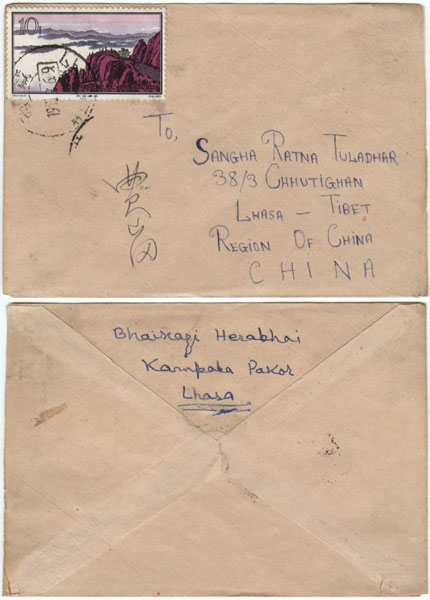 10
To,
SANGHA RATNA TULADHAR
38/3 CHHUTIGHAN
LHASA – TIBET
REGION OF CHINA
CHINA
Bhairagi Herabhai
Karnpala Pakor
Lhasa